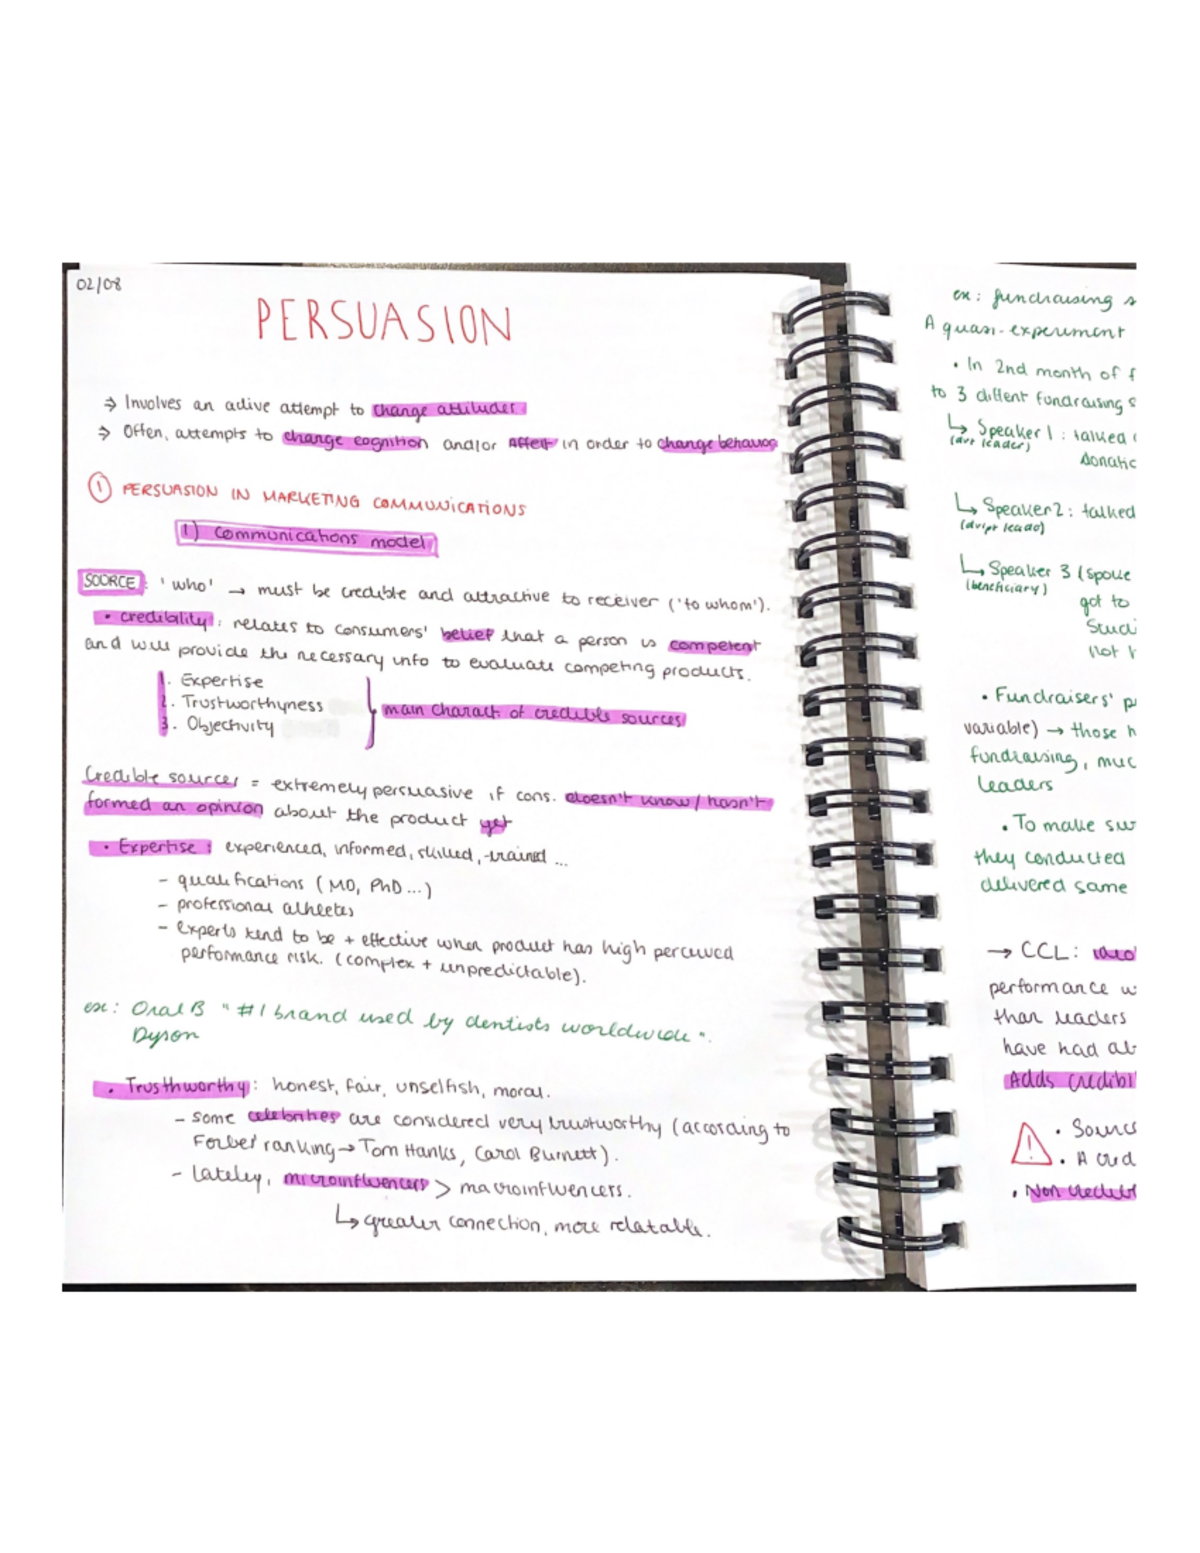 02/08
PERSUASION
⇒ Involves an active attempt to change attitudes
⇒ Often, attempts to change cognition and/or affect in order to change behavior
① PERSUASION IN MARKETING COMMUNICATIONS
1) Communications model
SOURCE: 'who' → must be credible and attractive to receiver ('to whom').
• credibility: relates to consumers' belief that a person is competent
and will provide the necessary info to evaluate competing products.
1. Expertise
2. Trustworthyness
3. Objectivity
main charact. of credible sources
Credible sources = extremely persuasive if cons. doesn't know / hasn't
formed an opinion about the product yet
• Expertise: experienced, informed, skilled, trained ...
- qualifications (MD, PhD...)
- professional athletes
- experts tend to be + effective when product has high perceived
performance risk. (complex + unpredictable).
ex: Oral B "#1 brand used by dentists worldwide".
Dyson
• Trusthworthy: honest, fair, unselfish, moral.
- Some celebrities are considered very trustworthy (according to
Forbes ranking → Tom Hanks, Carol Burnett).
- Lateley, microinfluencers > macroinfluencers.
↳ greater connection, more relatable.
ex: fundraising s
A quasi-experiment
• In 2nd month of f
to 3 diffent fundraising s
↳ Speaker 1: talked
(dvr leader)
Donatio
↳ Speaker 2: talked
↳ Speaker 3 (spoke
(beneficiary)
got to
not
• Fundraisers' p
variable) → those h
fundraising, muc
leaders
• To make su
they conducted
delivered same
→ CCL:
performance w
than leaders
have had ab
Adds credibi
• Source
• A cred
• Non credibl